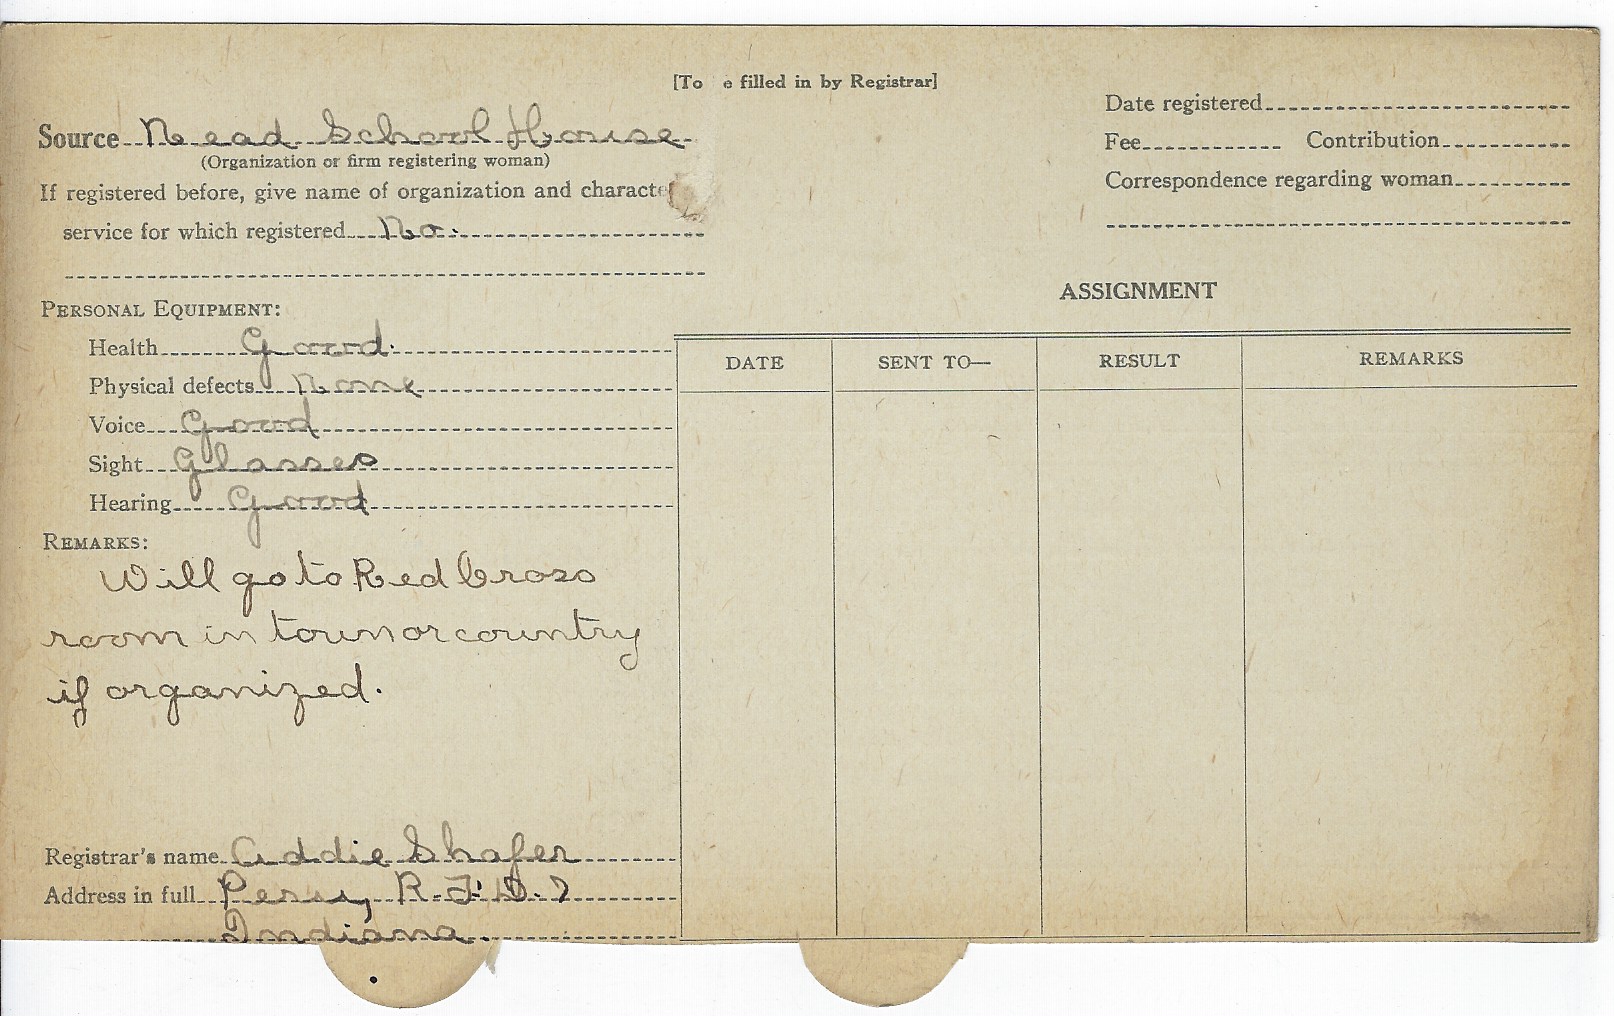 [To e filled in by Registrar]
Source Nead School House
(Organization or firm registering woman)
If registered before, give name of organization and characte
service for which registered No.
PERSONAL EQUIPMENT:
Health Good.
Physical defects None
Voice Good
Sight Glasses
Hearing Good
REMARKS:
Will go to Red Cross
room in town or country
if organized.
Registrar's name Addie Shafer
Address in full Peru, R.F.D. 7
Indiana.
Date registered
Fee Contribution
Correspondence regarding woman
ASSIGNMENT
DATE SENT TO— RESULT REMARKS